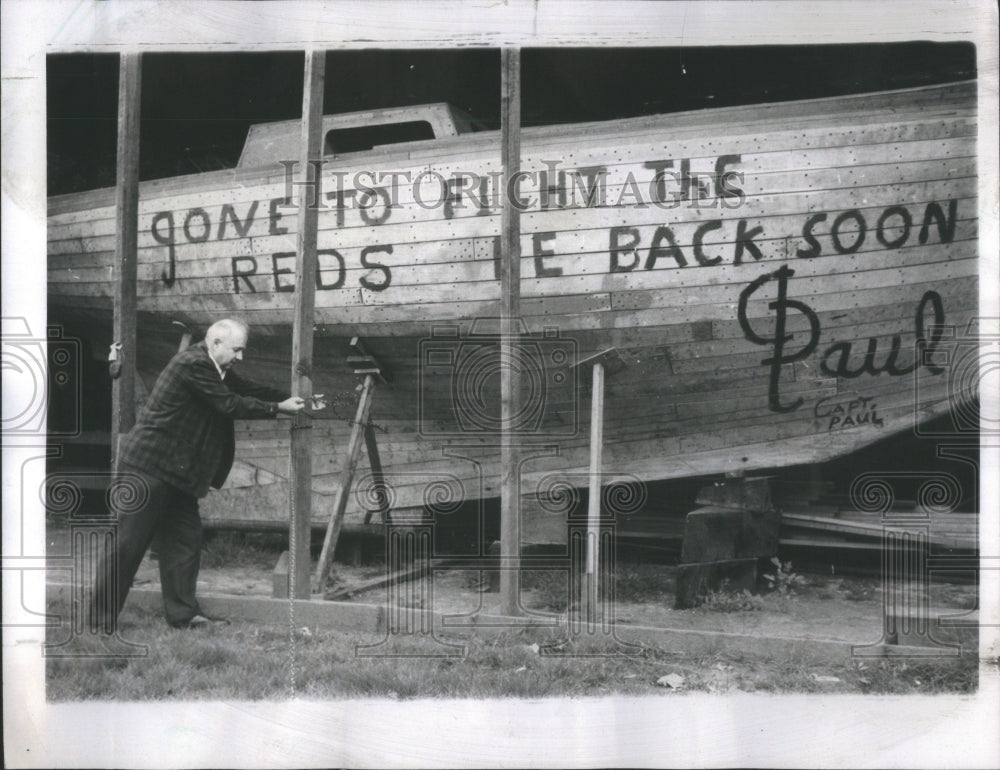 gONE TO FIGHT THE
REDS BE BACK SOON
Paul
CAPT.
PAUL
HISTORIC IMAGES